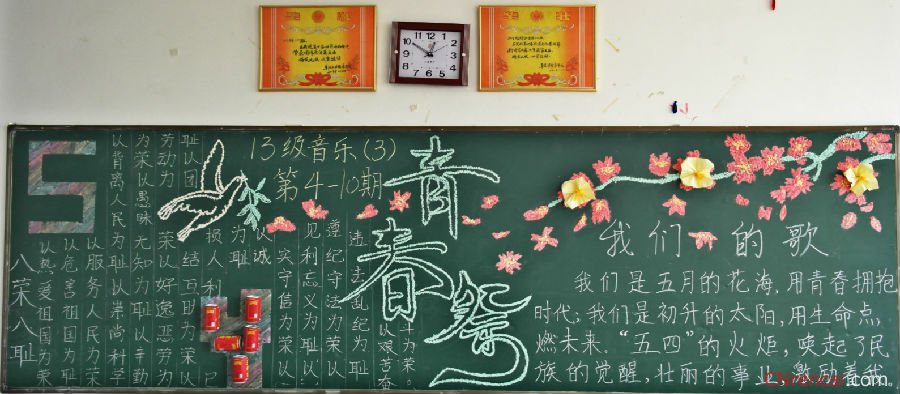 13级音乐(3)
第4-10期
5
4
青春祭
八荣八耻
以热爱祖国为荣
以危害祖国为
以服务人民为荣
以背离人民为耻以崇尚科学
为荣以愚昧无知为耻以辛勤
劳动为荣以好逸恶劳为
耻以团结互助为荣以
损人利己
为耻
以诚
实守信为荣以
见利忘义为耻以
遵纪守法为荣以
违法乱纪为耻
以艰苦奋
斗为荣
我们的歌
我们是五月的花海,用青春拥抱
时代;我们是初升的太阳,用生命点
燃未来.“五四”的火炬,唤起了民
族的觉醒,壮丽的事业,激励着我
12
1
2
3
4
5
6
7
8
9
10
11